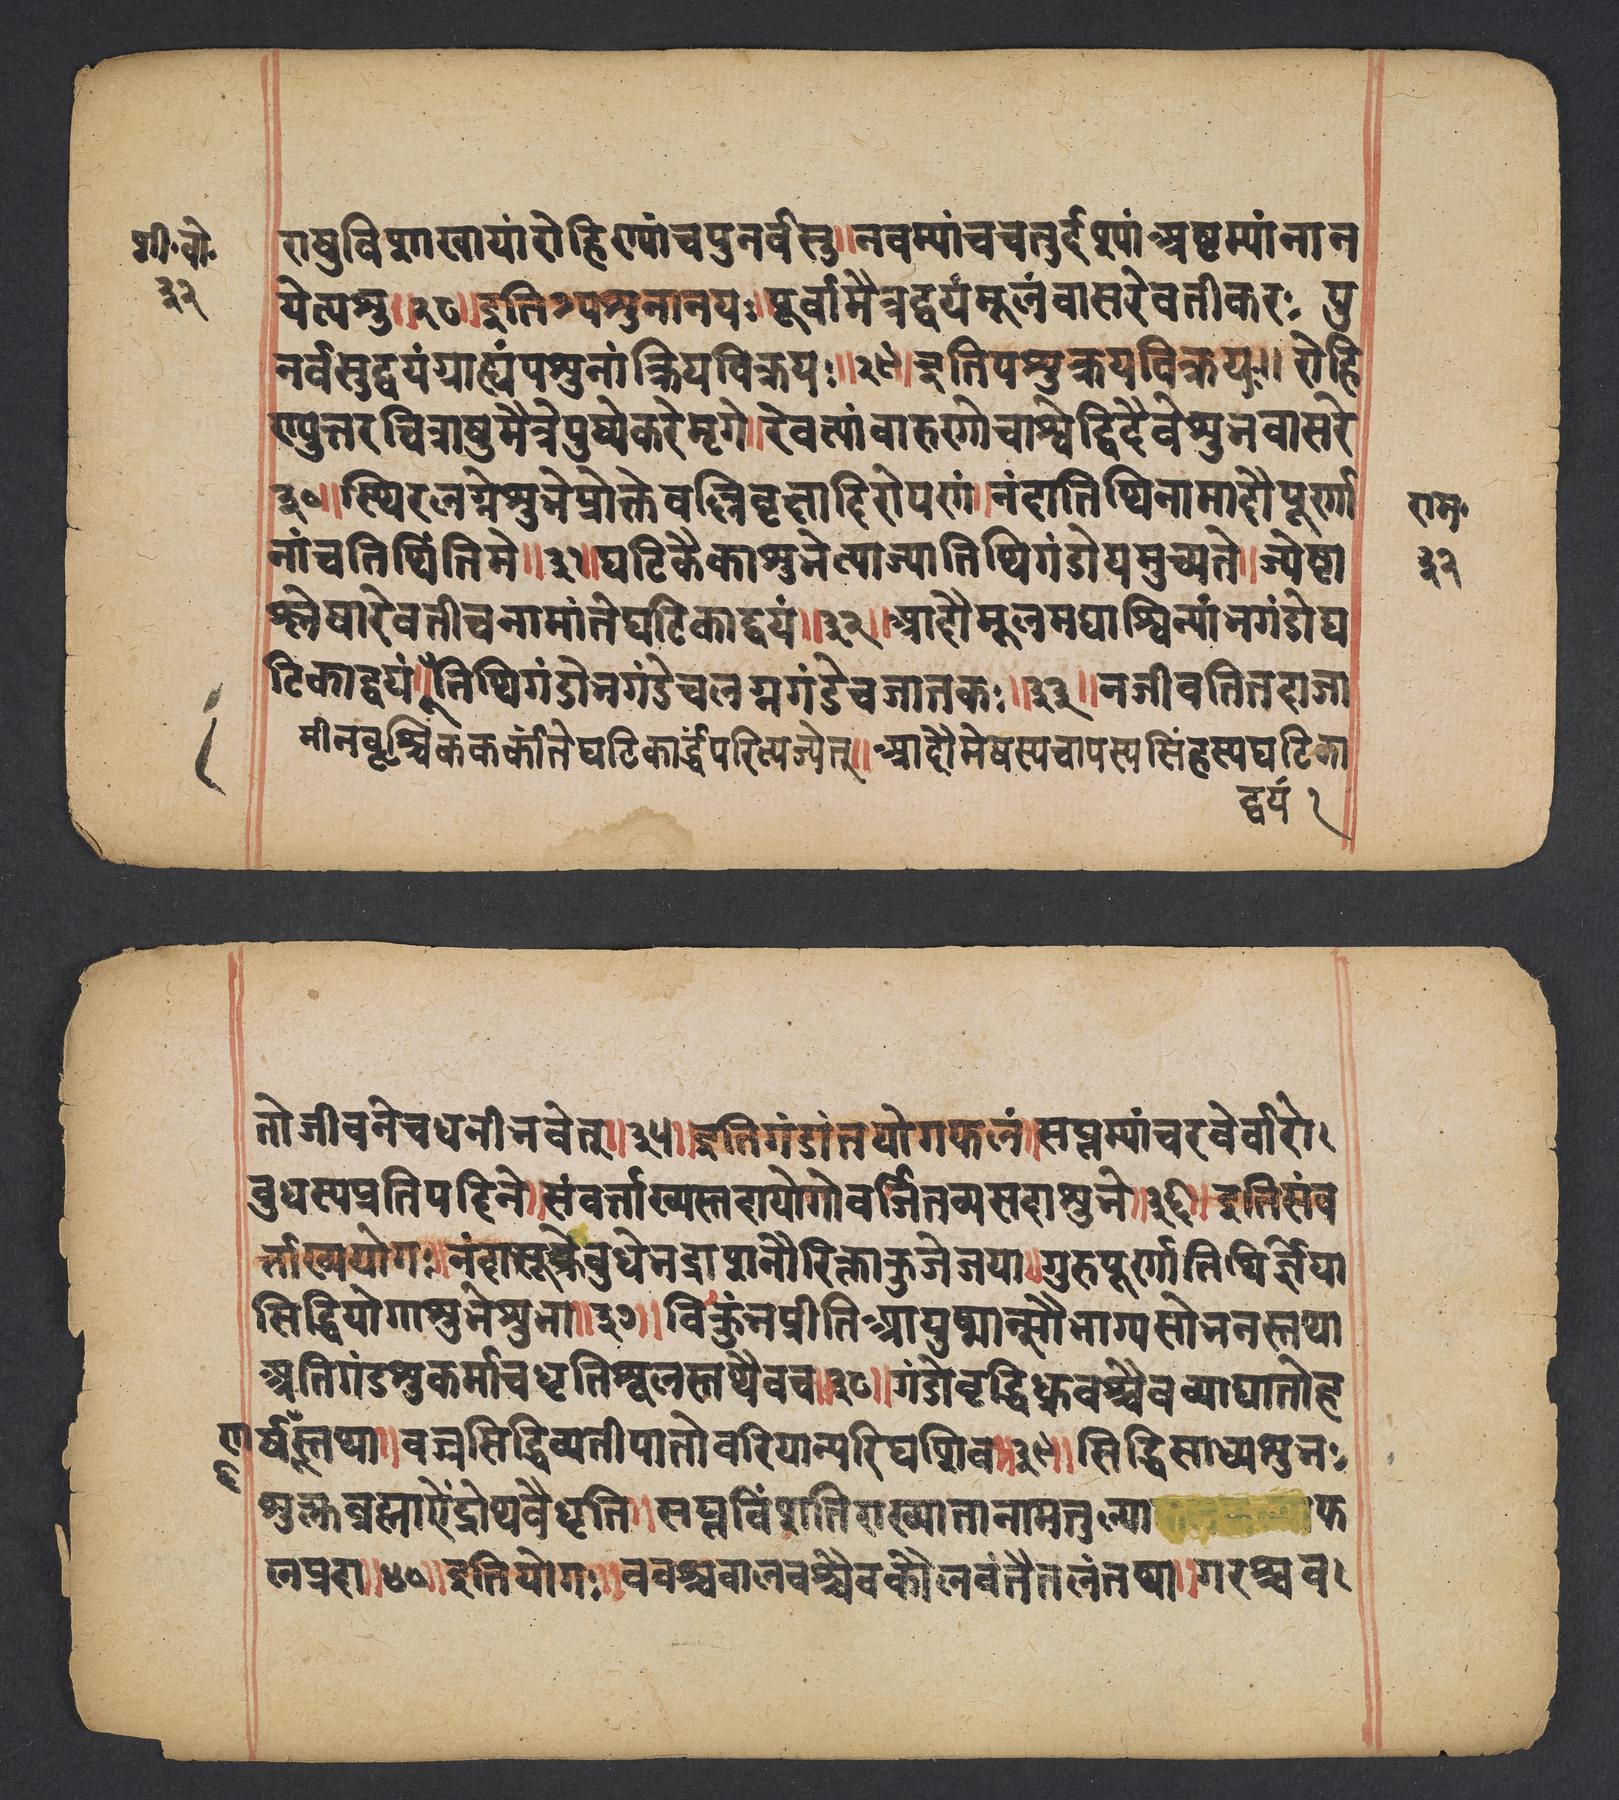 शी॰ वो॰
३२
राषुविशाखायांरोहिण्यांचपुनर्वसु॥नवम्यांचचतुर्दश्यांअष्टम्यांनान
येत्पशु॥२८॥इतिपशुनानयः॥पूर्वामैत्रद्वयंमूलंवासरेवतीकरः पु
नर्वसुद्वयंग्राह्यंपशुनांक्रियविक्रयः॥२९॥इतिपशुक्रयविक्रयः॥ रोहि
ण्युत्तरचित्राषुमैत्रेपुष्येकरेमृगे॥रेवत्यांवारुणेचाश्वेद्विदैवेशुभवासरे
३०॥स्थिरलग्नेशुभेप्रोक्तेवल्लिवृक्षादिरोपणं॥नंदातिथिनामादौपूर्णा
नांचतिथिंतिमे॥३१॥घटिकैकाशुभेत्याज्यातिथिगंडोयमुच्यते॥ज्येष्टा
राम॰
३२
श्लेषारेवतीचनामांतेघटिकाद्वयं॥३२॥आदौमूलमघाश्विन्यांभगंडोघ
टिकाद्वयं॥तिथिगंडोभगंडेचलग्नगंडेचजातकः॥३३॥नजीवतितदाजा
मीनवृश्चिककर्कांतेघटिकार्द्धंपरित्यज्येत्॥आदौमेषस्यचापस्यसिंहस्यघटिका
द्वयं १
तोजीवनेचधनीभवेत्॥३५॥इतिगंडांतयोगफलं॥सप्तम्यांचरवेर्वारो१
बुधस्यप्रतिपद्दिने॥संवर्त्ताख्यस्तदायोगोवर्जितव्यसदाशुभे॥३६॥इतिसंव
र्त्ताख्ययोगः॥नंदासूक्रेबुधेभद्राशनौरिक्ताकुजेजया॥गुरुपूर्णातिथिर्ज्ञेया
सिद्धियोगाशुभेशुभा॥३७॥विष्कुंभप्रीतिआयुष्मान्सौभाग्यसोभनस्तथा
अतिगंडशुकर्माचधृतिश्शूलस्तथैवच॥३८॥गंडोवृद्धिध्रुवश्चैवव्याघातोह
र्षस्तथा॥वज्रसिद्धिव्यतीपातोवरियान्परिघशिव॥३९॥सिद्धिसाध्यशुभः
ण
६
शुक्लब्रह्माऐंद्रोथवैधृति॥सप्तविंशतिराख्यातानामतुल्या फ
लप्रदा॥४०॥इतियोगः॥ववश्चवालवश्चैवकौलवंतैतलंतथा॥गरश्चव१